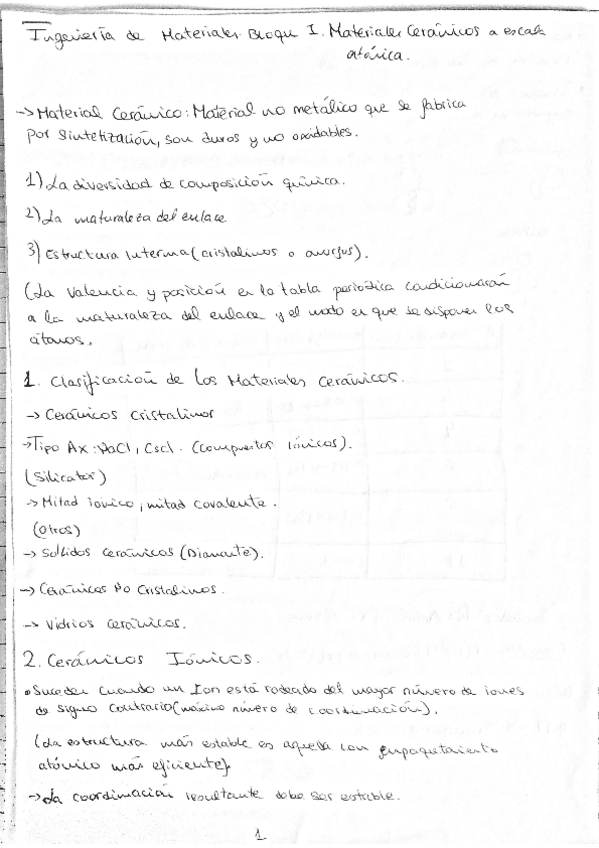 Ingeniería de Materiales. Bloque I. Materiales Cerámicos a escala
atómica.
-> Material Cerámico: Material no metálico que se fabrica
por sintetización, son duros y no oxidables.
1) La diversidad de composición química.
2) La naturaleza del enlace
3) Estructura Interna (cristalinos o amorfos).
(La Valencia y posición en la tabla periódica condicionarán
a la naturaleza del enlace y el modo en que se disponen los
átomos.
1. Clasificación de los Materiales Cerámicos.
-> Cerámicos Cristalinos
-> Tipo AX: NaCl, CsCl. (Compuestos iónicos).
(Silicatos)
-> Mitad iónico, mitad covalente.
(Otros)
-> Sólidos Cerámicos (Diamante).
-> Cerámicos No Cristalinos.
-> Vidrios Cerámicos.
2. Cerámicos Iónicos.
• Suceden Cuando un Ion está rodeado del mayor número de iones
de signo contrario (máximo número de coordinación).
(La estructura más estable es aquella con empaquetamiento
atómico más eficiente).
-> La coordinación resultante debe ser estable.
1